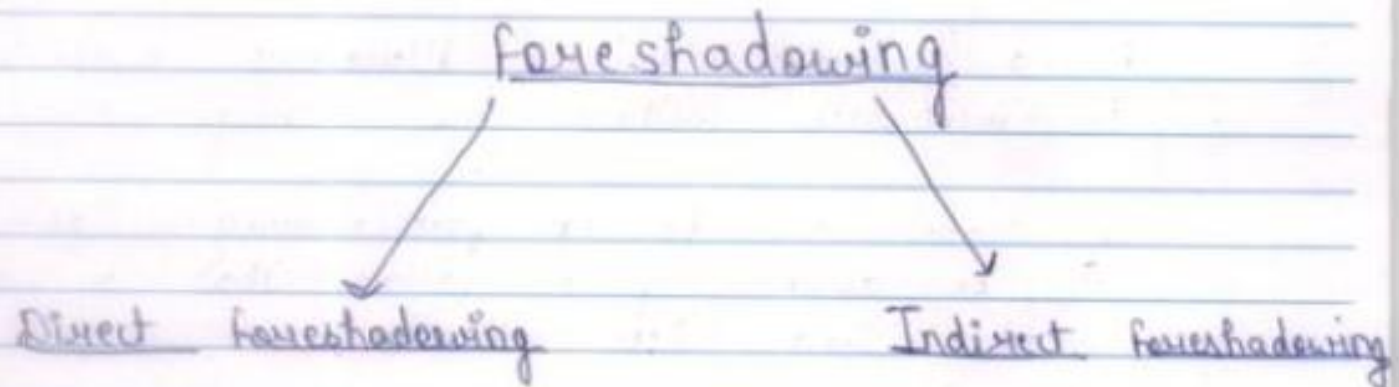 foreshadowing
Direct foreshadowing Indirect foreshadowing